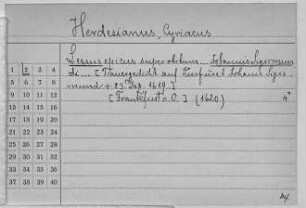 Herdesianus, Cyriacus
Lessus epicus super obitum Johannis Sigismun
di... [Trauergedicht auf Kurfürst Johann Sigis-
mund † 23. Dez. 1619.]
[Frankfurt a. O.] (1620) 4°
1 2 3 4
5 6 7 8
9 10 11 12
13 14 15 16
17 18 19 20
21 22 23 24
25 26 27 28
29 30 31 32
33 34 35 36
37 38 39 40